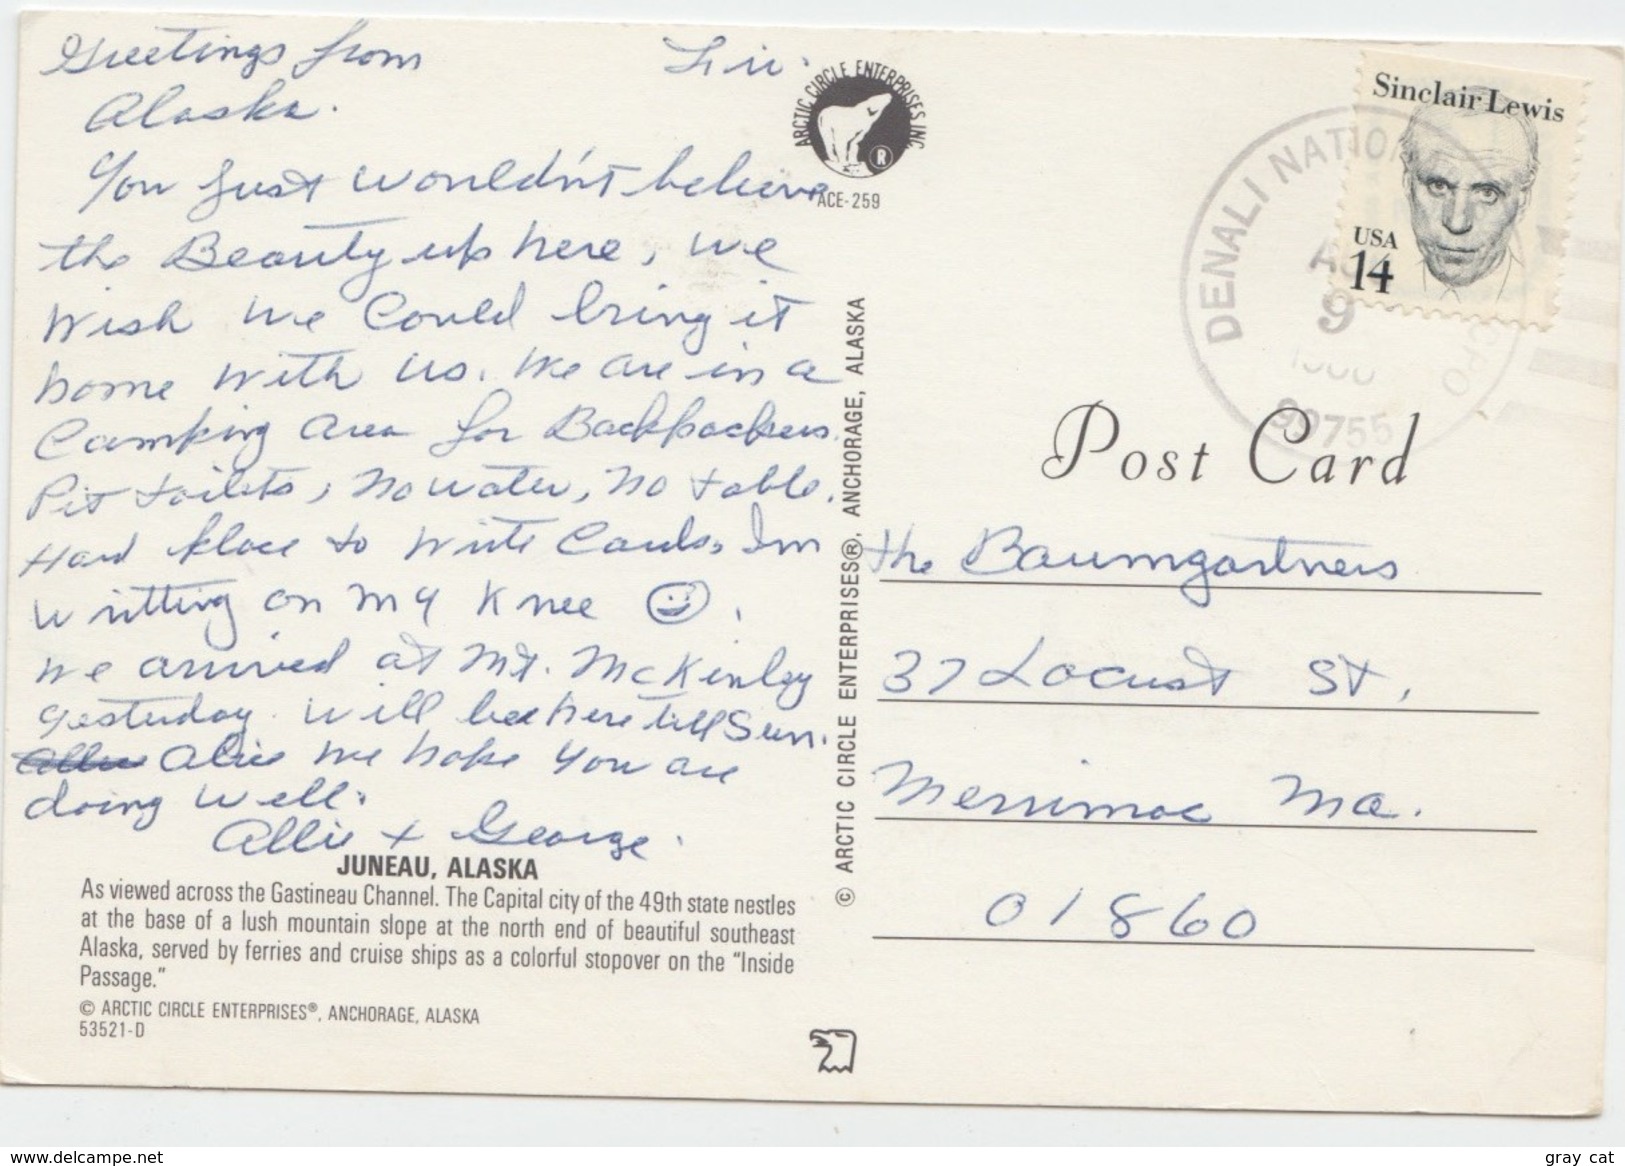 Greetings from Fri.
Alaska.
You Just wouldn't believe
the Beauty up here, we
Wish we Could bring it
home with us. We are in a
Camping area for Backpackers.
Pit toilets, no water, no table.
Hard place to write Cards, Im
writting on my Knee ☺.
We arrived at Mt. McKinley
yesterday. Will be here till Sun.
Allie Alie we hope you are
doing well.
Allie + George.
JUNEAU, ALASKA
As viewed across the Gastineau Channel. The Capital city of the 49th state nestles
at the base of a lush mountain slope at the north end of beautiful southeast
Alaska, served by ferries and cruise ships as a colorful stopover on the "Inside
Passage."
© ARCTIC CIRCLE ENTERPRISES®, ANCHORAGE, ALASKA
53521-D
ARCTIC CIRCLE ENTERPRISES INC.
®
ACE-259
© ARCTIC CIRCLE ENTERPRISES®, ANCHORAGE, ALASKA
Sinclair Lewis
USA
14
DENALI NATION
9
99755
CPO
Post Card
the Baumgartners
37 Locust St,
Merrimac Ma.
01860
www.delcampe.net
gray cat